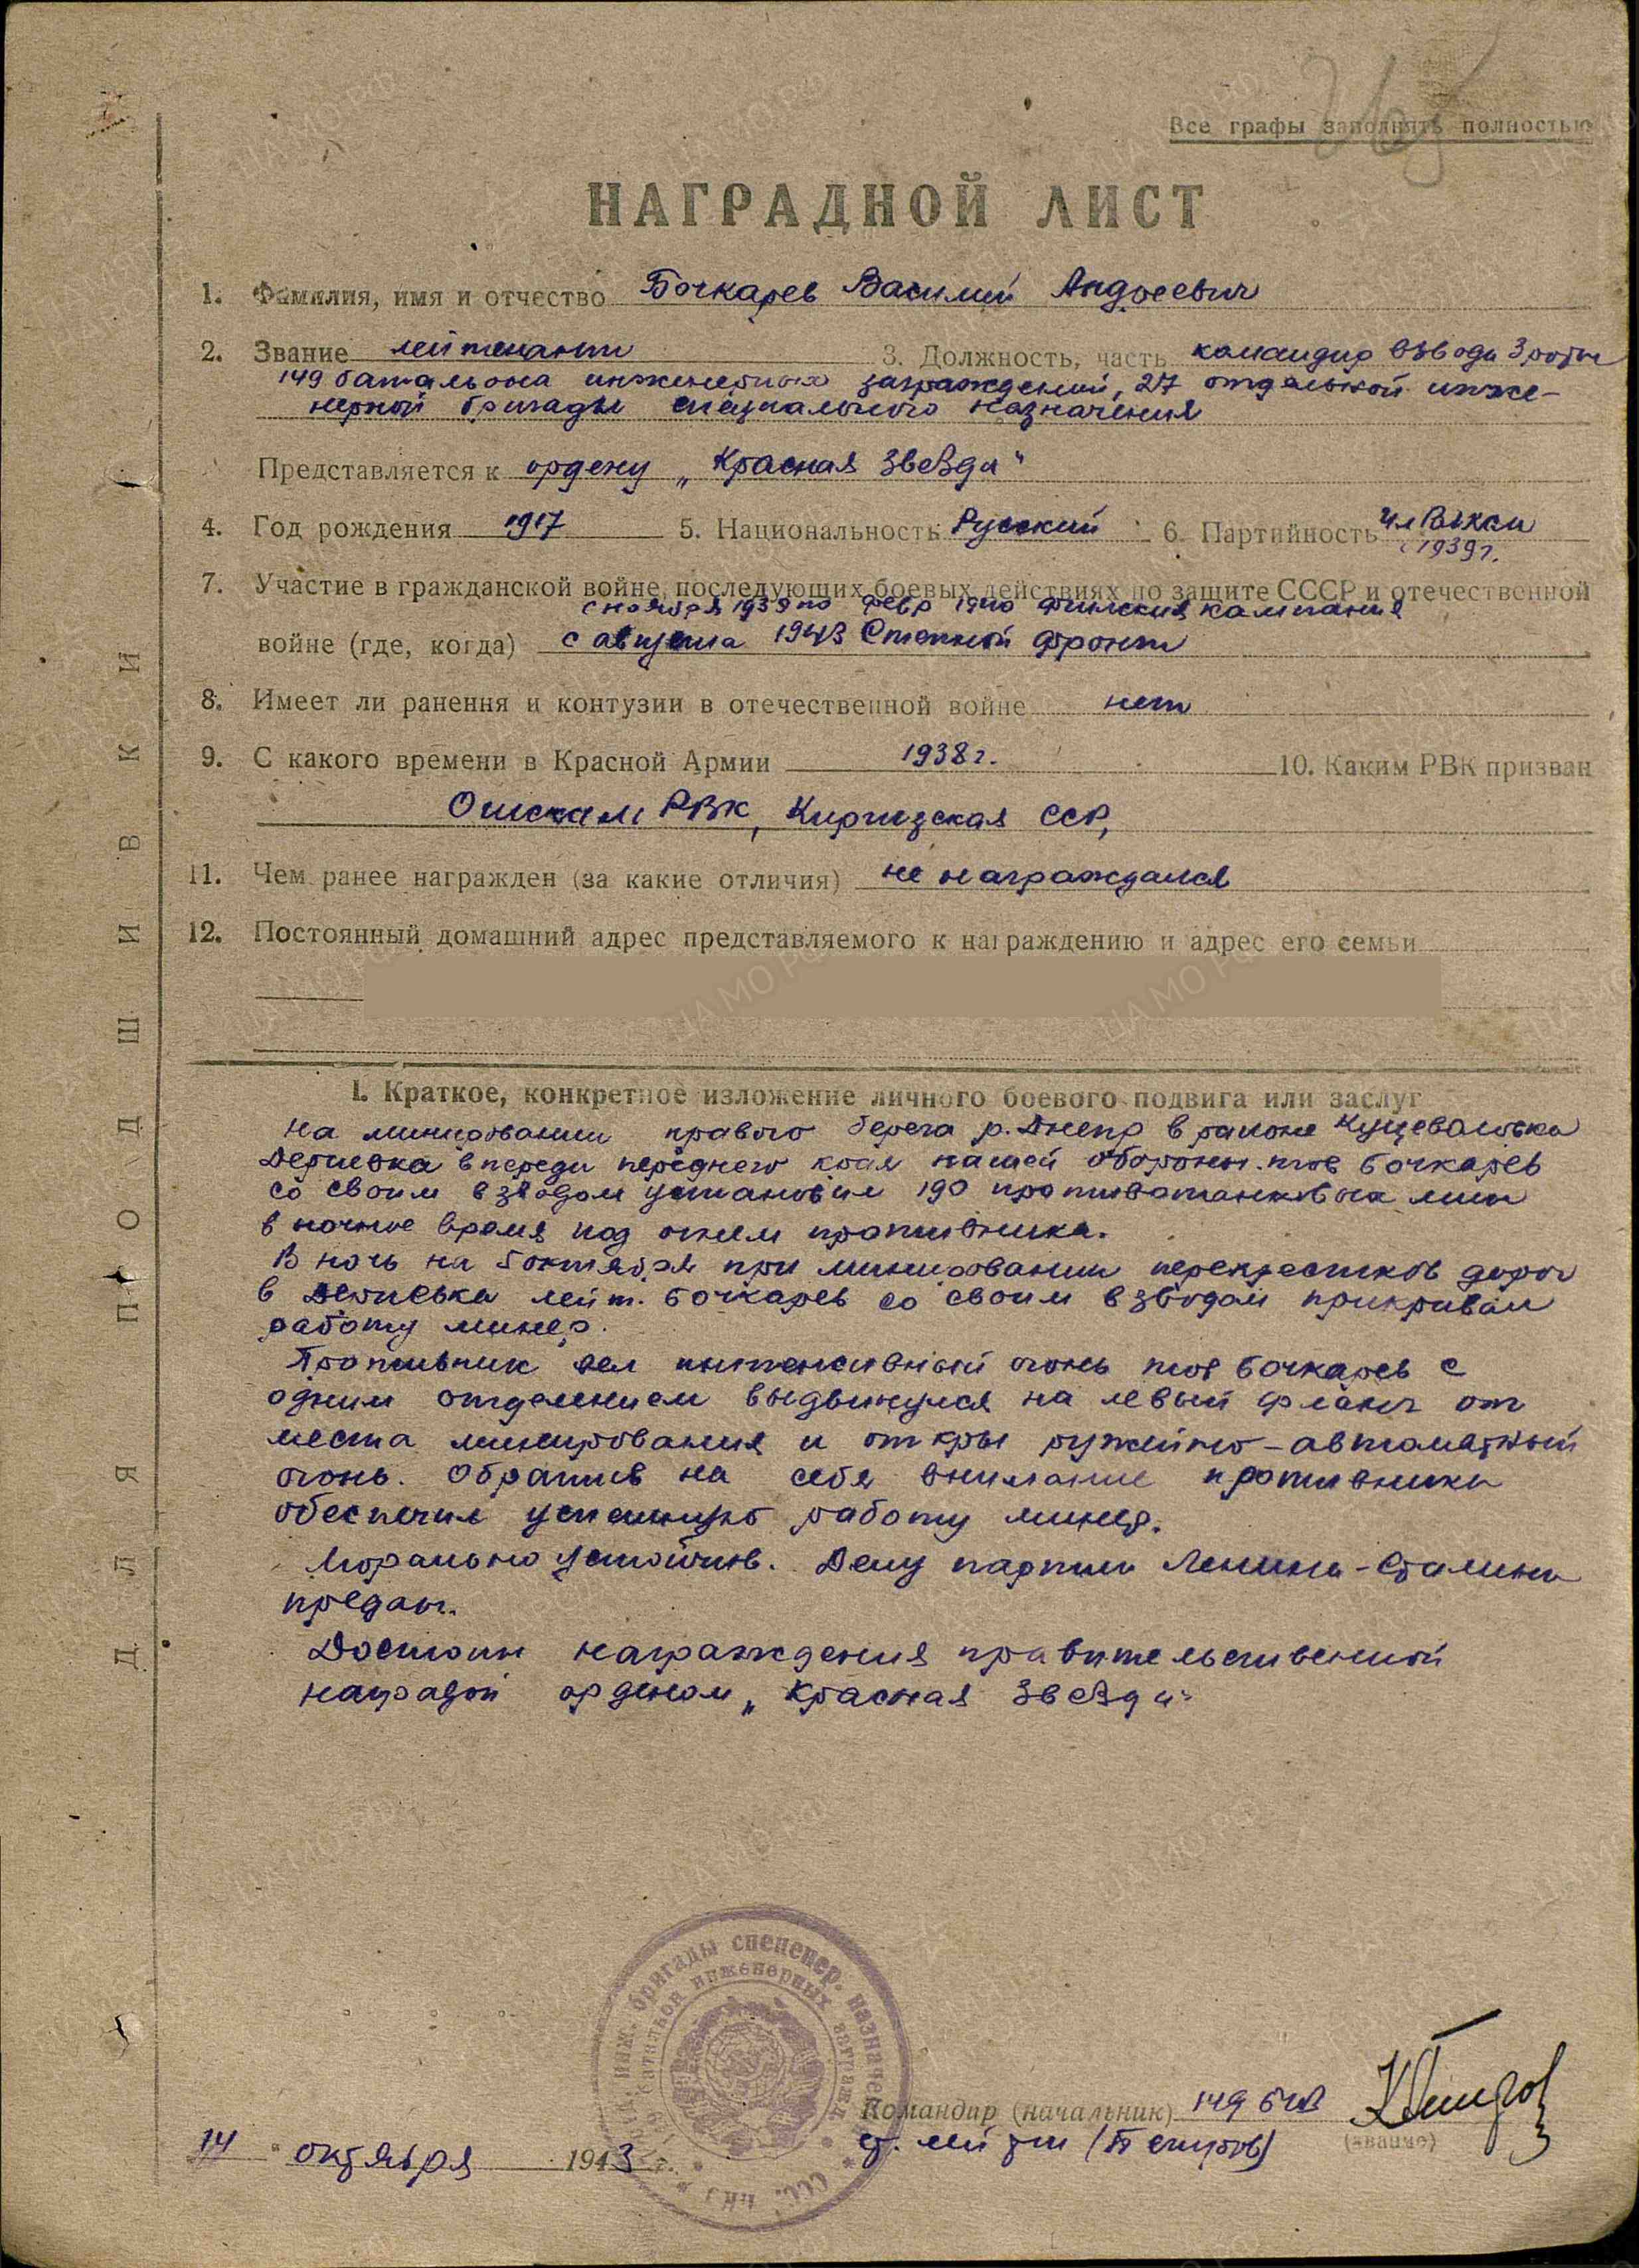 Все графы заполнять полностью
НАГРАДНОЙ ЛИСТ
1. Фамилия, имя и отчество Бочкарев Василий Андреевич
2. Звание лейтенант 3. Должность, часть командир взвода 3 роты
149 батальона инженерных заграждений, 27 отдельной инже-
нерной бригады специального назначения
Представляется к ордену „Красная Звезда"
4. Год рождения 1917 5. Национальность Русский 6. Партийность чл ВЛКСМ
с 1939 г.
7. Участие в гражданской войне, последующих боевых действиях по защите СССР и отечественной
с ноября 1939 по февр 1940 финская кампания
войне (где, когда) с августа 1943 Степной фронт
8. Имеет ли ранения и контузии в отечественной войне нет
9. С какого времени в Красной Армии 1938 г. 10. Каким РВК призван
Ошским РВК, Киргизская ССР,
11. Чем ранее награжден (за какие отличия) не награждался
12. Постоянный домашний адрес представляемого к награждению и адрес его семьи
I. Краткое, конкретное изложение личного боевого подвига или заслуг
На минировании правого берега р. Днепр в районе Куцеваловка
Дериевка впереди переднего края нашей обороны. тов Бочкарев
со своим взводом установил 190 противотанковых мин
в ночное время под огнем противника.
В ночь на 5 октября при минировании перекрестков дорог
в Дериевка лейт. Бочкарев со своим взводом прикривал
работу минер.
Противник вел интенсивный огонь тов Бочкарев с
одним отделением выдвинулся на левый фланг от
места минирования и открыл ружейно-автоматный
огонь. Обратив на себя внимание противника
обеспечил успешную работу минер.
Морально устойчив. Делу партии Ленина-Сталина
предан.
Достоин награждения правительственной
наградой орденом „Красная Звезда"
Командир (начальник) 149 БИЗ
ст. лейт-т
(звание)
14 октября 1943 г.
инж. бригады спец. назначен
батальон инженерных загражд.
ДЛЯ ПОДШИВКИ
ЦА МО РФ